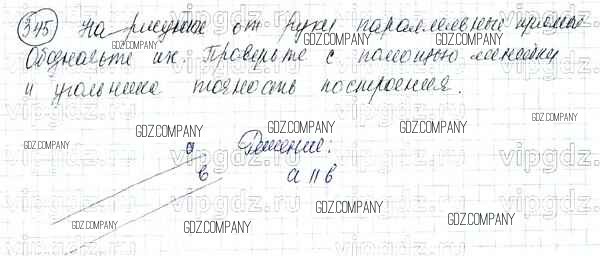 345 На рисунке от руки параллельные прямые
Обозначьте их. Проверьте с помощью линейки
и угольника точность построения.
GDZ.COMPANY GDZ.COMPANY GDZ.COMPANY
vipgdz.ru vipgdz.ru vipgdz.ru
GDZ.COMPANY GDZ.COMPANY GDZ.COMPANY GDZ.COMPANY
а Решение:
vipgdz.ru vipgdz.ru vipgdz.ru
в а || в
GDZ.COMPANY GDZ.COMPANY GDZ.COMPANY
vipgdz.ru vipgdz.ru vipgdz.ru